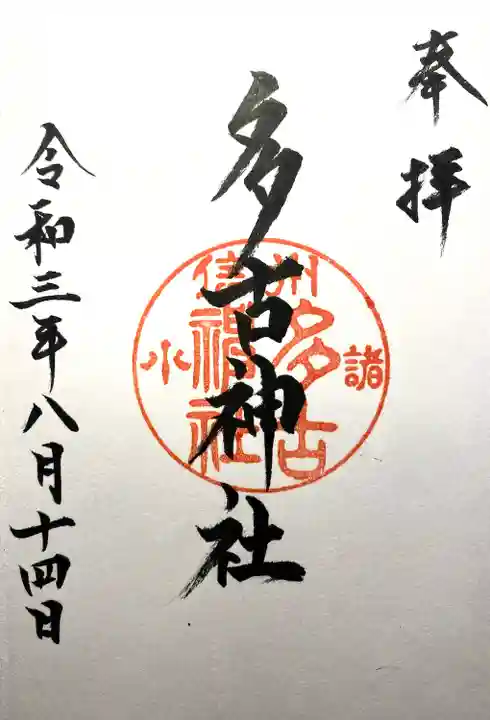 奉拝
多古神社
令和三年八月十四日
信州
諸
小
多古
神社